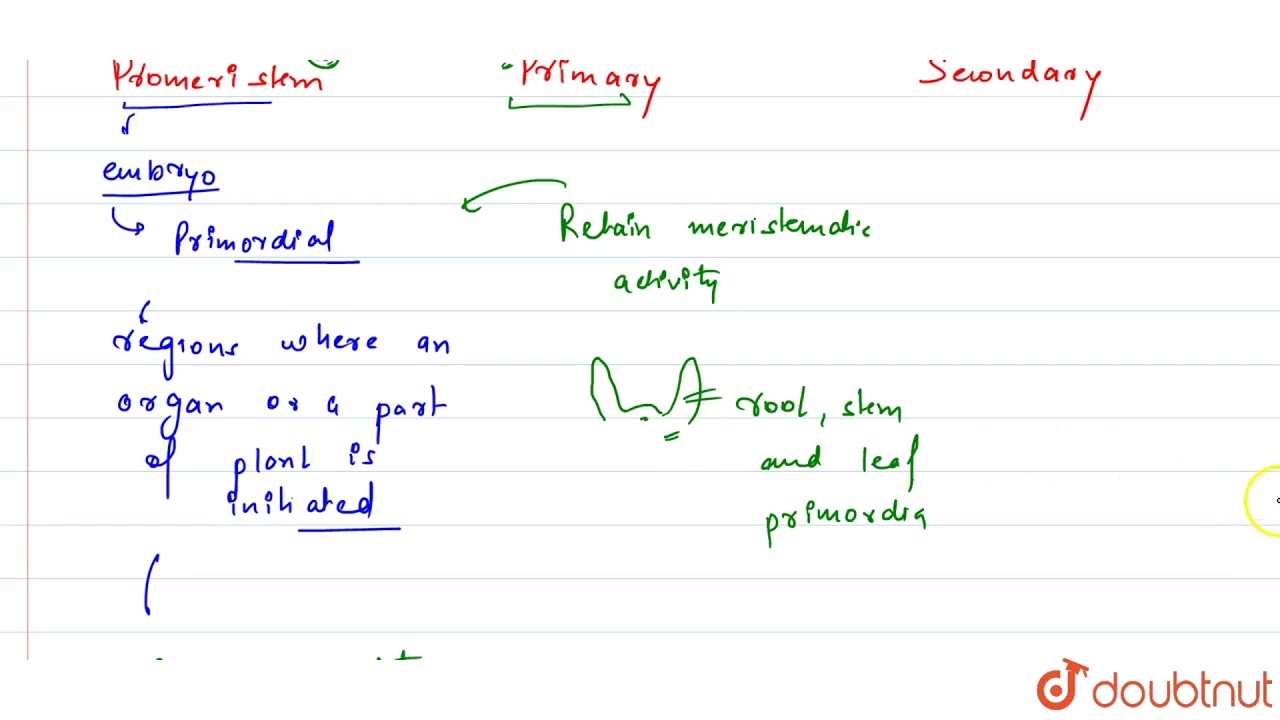 Promeristem Primary Secondary
embryo
Primordial
Retain meristematic
activity
regions where an
organ or a part
of plant is
initiated
root, stem
and leaf
primordia
doubtnut